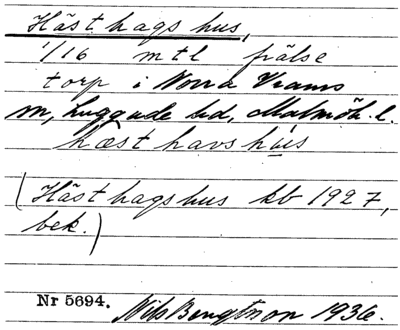 Hästhagshus,
1/16 mtl frälse
torp i Norra Vrams
sn, Luggude hd, Malmöh. l.
hæsthavshus
(Hästhagshus kb 1927,
bek.)
Nr 5694. Nils Bengtsson 1936.